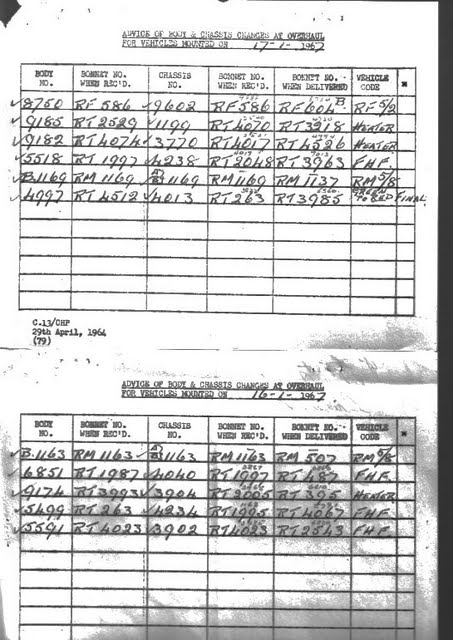 ADVICE OF BODY & CHASSIS CHANGES AT OVERHAUL
FOR VEHICLES MOUNTED ON 17-1-1967
BODY NO. BONNET NO. WHEN REC'D. CHASSIS NO. BONNET NO. WHEN REC'D. BONNET NO. WHEN DELIVERED VEHICLE CODE
✓8750 RF 586 ✓9602 RF 586 RF 604 B RF 5/2
✓9185 RT 2529 ✓1199 RT 4070 RT 3218 HEATER
✓9182 RT 4074 ✓3770 RT 4017 RT 4526 HEATER
✓5518 RT 1997 ✓4238 RT 2048 RT 3963 F.H.F.
✓B.1169 RM 1169 1169 RM 1169 RM 1137 RM 5/8
✓4997 RT 4512 ✓4013 RT 263 RT 3985 GREEN TO RED FINAL
C.13/CHP
29th April, 1964
(79)
ADVICE OF BODY & CHASSIS CHANGES AT OVERHAUL
FOR VEHICLES MOUNTED ON 16-1-1967
BODY NO. BONNET NO. WHEN REC'D. CHASSIS NO. BONNET NO. WHEN REC'D. BONNET NO. WHEN DELIVERED VEHICLE CODE
✓B.1163 RM 1163 1163 RM 1163 RM 507
✓6851 RT 1987 ✓4040 RT 1997 FHF.
✓9174 RT 3993 ✓3904 RT 2005 RT 395 HEATER
✓5499 RT 263 ✓4234 RT 1995 RT 4067 FHF
✓5591 RT 4023 ✓3902 RT 4023 RT 2543 FHF